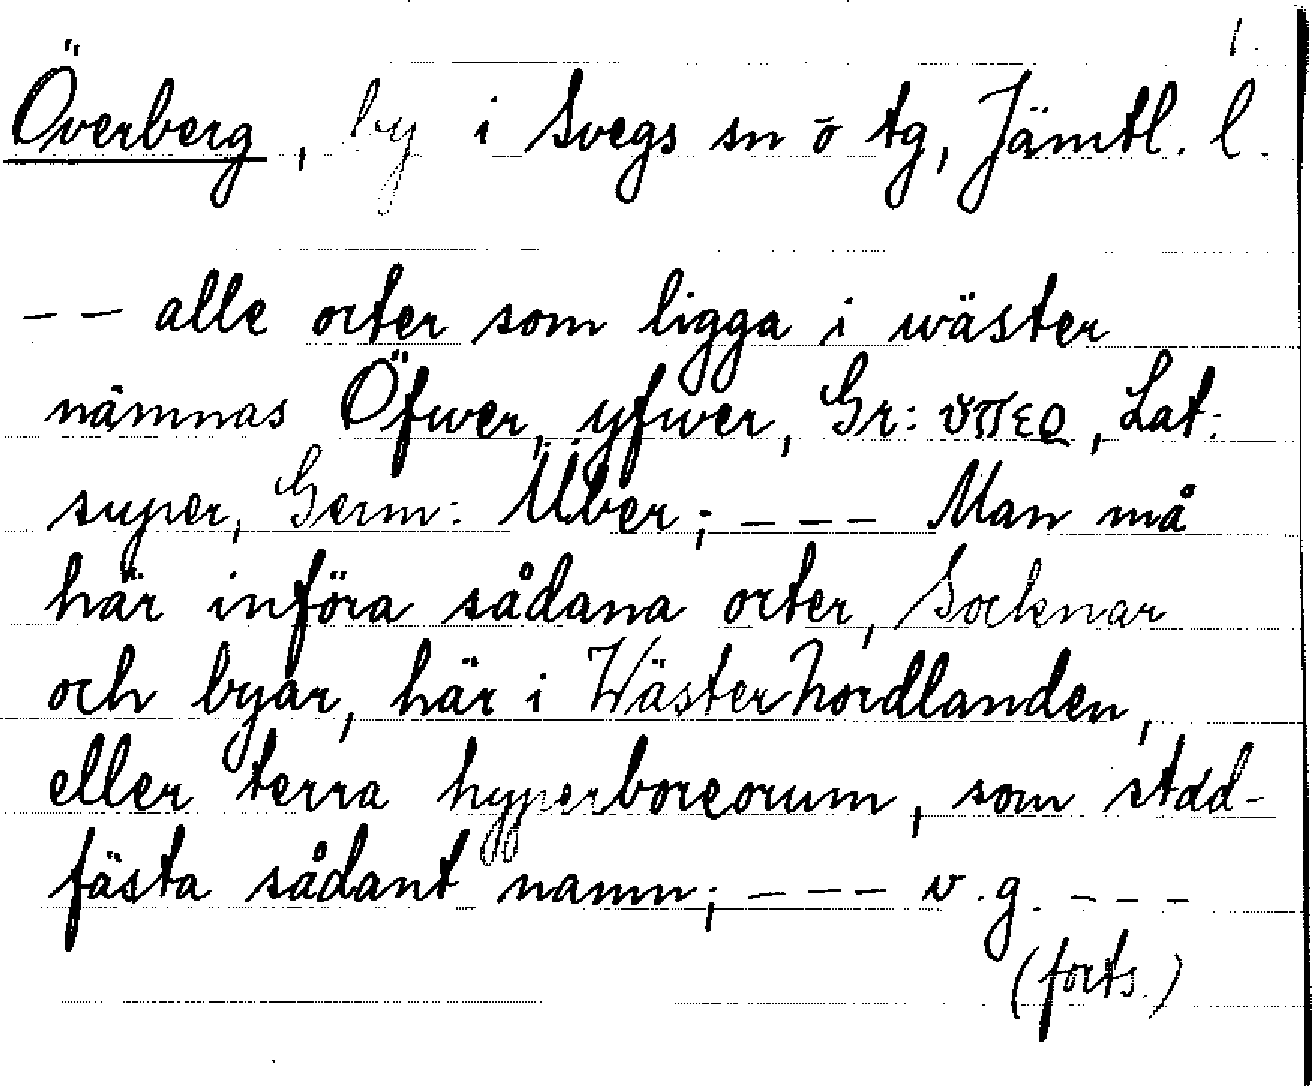 1.
Överberg, by i Svegs sn o tg, Jämtl. l.
-- alle orter som ligga i wäster
nämnas Öfwer, yfwer, Gr: ὑπερ, Lat:
super, Germ: Über; --- Man må
här införa sådana orter, Socknar
och byar, här i WästerNordlanden,
eller terra hyperboreorum, som stad-
fästa sådant namn; --- v.g. ---
(forts.)